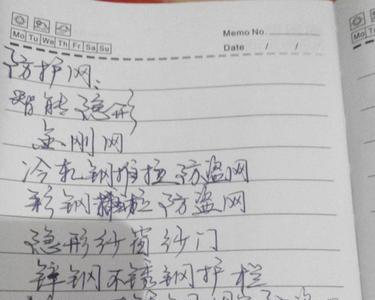 Memo No.
Mo Tu We Th Fr Sa Su
Date / /
Mo Tu
防护网、
智能隐形
金刚网
冷轧钢推拉防盗网
彩钢推拉防盗网
隐形纱窗纱门
锌钢不锈钢护栏